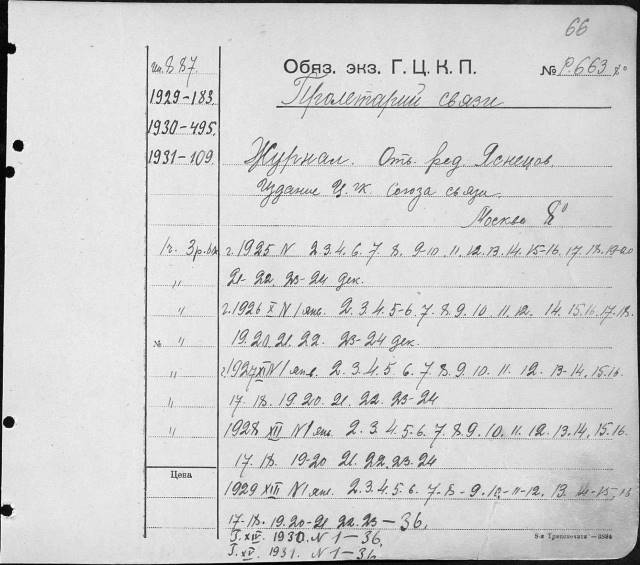 66
Обяз. экз. Г. Ц. К. П. № Р.663 8°
887.
1929-183.
1930-495.
1931-109.
Пролетарий связи
Журнал. Отв. ред. Яснецов.
Издание Ц. чк. Союза связи.
Москва 8°
1ч. 3р. г. 1925 N 2.3.4.6.7.8. 9-10.11.12.13.14.15-16.17.18.19-20
21-22. 23-24 дек.
" г. 1926 X N 1 янв. 2.3.4.5-6.7.8.9.10.11.12. 14.15.16.17.18.
№ " 19.20.21.22. 23-24 дек.
" г. 1927 XI N 1 янв. 2.3.4.5.6.7.8.9.10.11.12. 13-14.15.16.
" 17.18. 19.20. 21. 22. 23-24
" 1928 XII N 1 янв. 2.3.4.5.6.7.8.9.10.11.12.13.14.15.16.
17.18. 19-20 21.22.23-24
Цена
1929 XIII N 1 янв. 2.3.4.5.6.7.8-9.10-11-12. 13. 14-15-16
17-18. 19.20-21 22.23-36.
Т. XIV. 1930. N 1-36.
Т. XV. 1931. N 1-36.